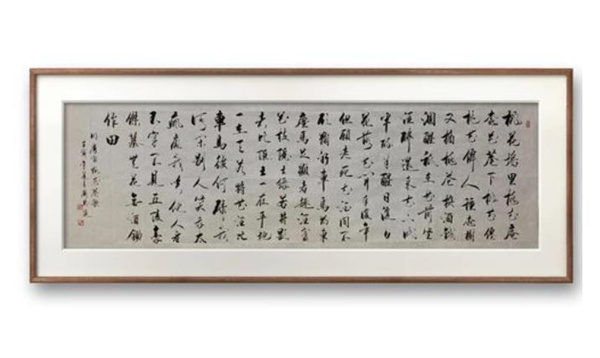 桃花塢里桃花庵
桃花菴下桃花僊
桃花僊人種桃樹
又摘桃花換酒錢
酒醒秖在花前坐
酒醉還來花下眠
半醉半醒日復日
花落花開年復年
但願老死花酒間不
願鞠躬車馬前車
塵馬足顯者趣酒盞
花枝隱士緣若將顯
者比隱士一在平地
一在天若將花酒比
車馬彼何碌碌我
何閑別人笑我太
瘋癲我笑他人看
不穿不見五陵豪
傑墓無花無酒鋤
作田
明唐寅桃花菴歌